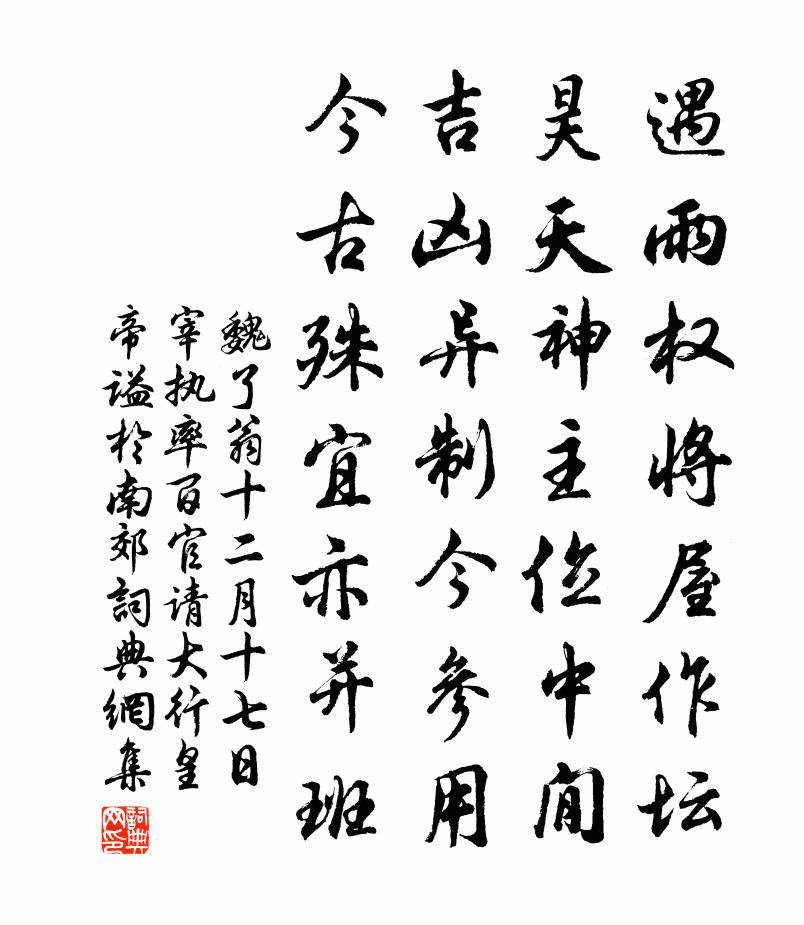 遇雨权将屋作坛
昊天神主位中间
吉凶异制今参用
今古殊宜亦并班
魏了翁十二月十七日
宰执率百官请大行皇
帝谥於南郊詞典網集
詞典网印